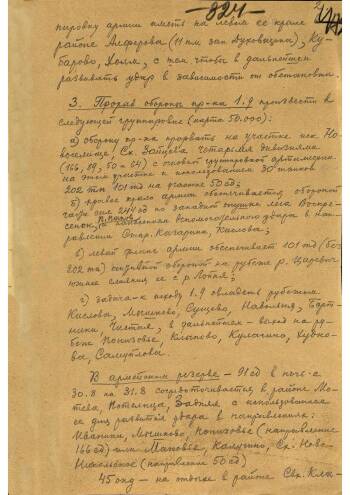 824
пировку армии иметь на левом ее крыле
районе Алферова (11 км зап. Духовщина), Ку-
барово, Холм, с тем чтобы в дальнейшем
развивать удар в зависимости от обстановки.
3. Прорыв обороны пр-ка 1.9 произвести в
следующей группировке (карта 50.000):
а) оборону пр-ка прорвать на участке иск. Но-
воселище, Сх. Занчеса четырьмя дивизиями
(166, 89, 50 и 64) с основной группировкой артиллерии
на этом участке и использованием 30 танков
202 тп 101 тд на участке 50 сд;
б) правое крыло армии обеспечивается обороной
части сил 244 сд по западной опушке леса Воскре-
сенск, п. нанесением вспомогательного удара в нап-
равлении Стар. Качарина, Кислова;
в) левый фланг армии обеспечивает 101 тд (без
202 тп) активной обороной на рубеже р. Царевич
южнее слияния ее с р. Лойня;
г) задача к исходу 1.9 овладеть рубежом
Кислова, Мышково, Сущево, Навольня,
Чистая, в дальнейшем - выход на ру-
беж Понизовье, Клыпово, Кулагино,
Самуйлова.
В армейском резерве - 91 сд в ночь с
30.8 на 31.8 сосредоточивается в районе Мо-
тева, Потелица, Задняя с использованием
ее для развития удара в направлениях:
Иванники, Мышково, Понизовье (направление
166 сд) или Маковье, Калугино, Сх. Ново-
Никольское (направление 50 сд)
45 кд - на стыке в районе Свх. Кла-